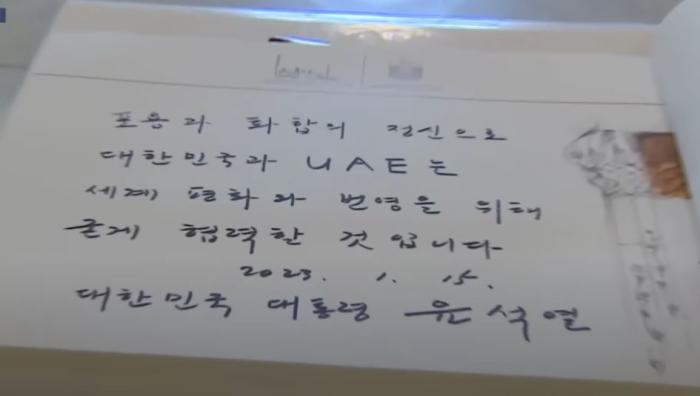 포용과 화합의 정신으로
대한민국과 UAE는
세계 평화와 번영을 위해
굳게 협력할 것입니다
2023. 1. 15.
대한민국 대통령 윤석열